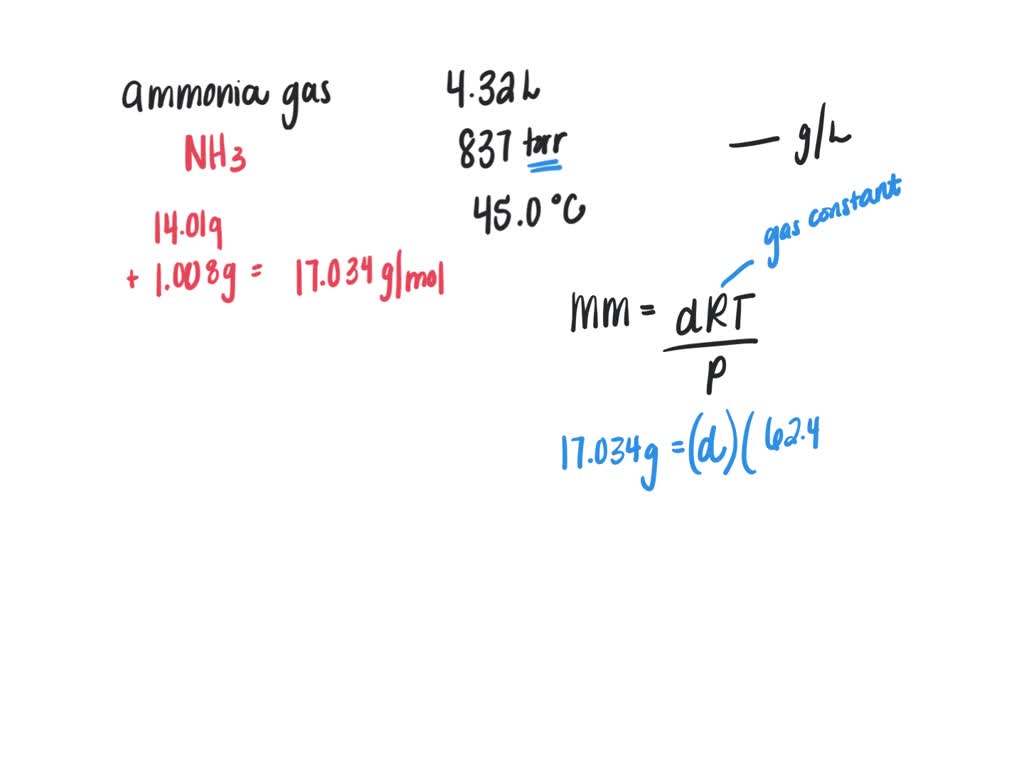 ammonia gas
NH3
14.01g
+ 1.008g = 17.034 g/mol
4.32L
837 torr
45.0 °C
— g/L
gas constant
MM = dRT
P
17.034g = (d)( 62.4